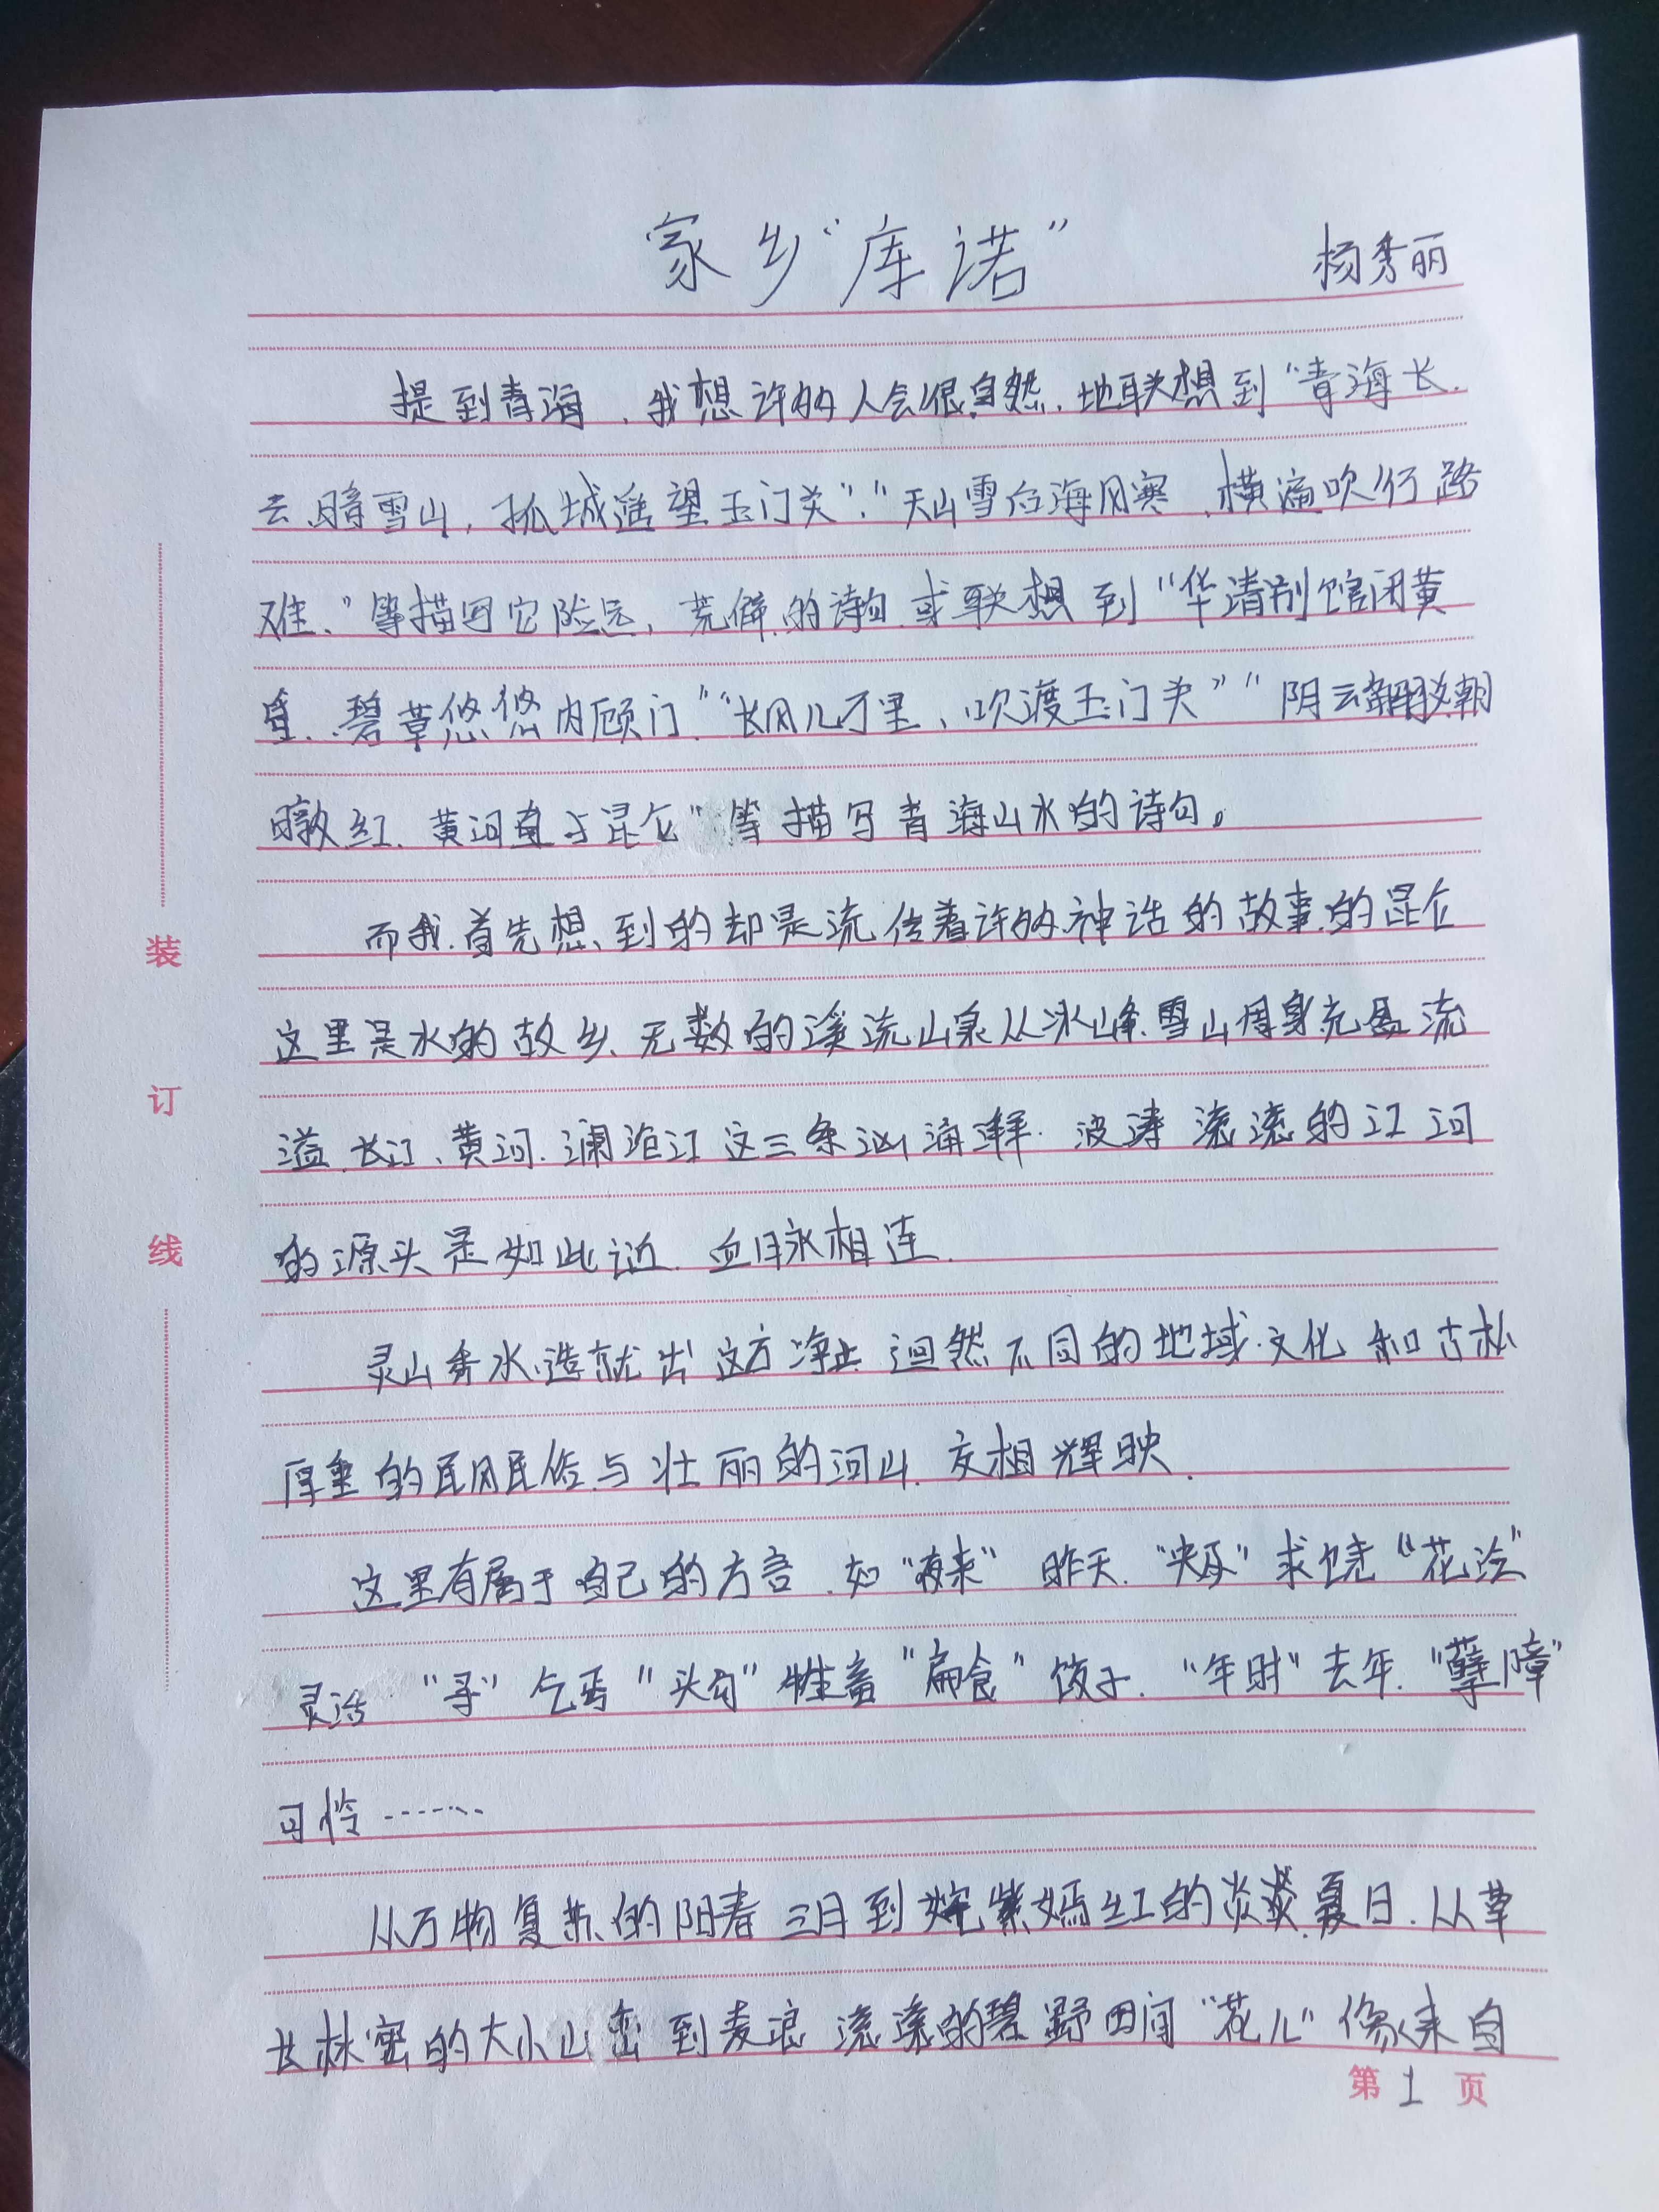 家乡“库诺”
杨秀丽
提到青海，我想许多的人会很自然、地联想到“青海长
云暗雪山，孤城遥望玉门关”“天山雪后海风寒，横笛吹行路
难、”等描写它险远，荒僻的诗句.或联想到“华清别馆闭黄
昏、碧草悠悠内厕门”“长风几万里、吹渡玉门关”“阴云翻驳朝
暾红、黄河直与昆仑”等描写青海山水的诗句。
而我、首先想到的却是流传着许多神话的故事的昆仑
这里是水的故乡、无数的溪流山泉从冰峰、雪山周身充盈流
溢、长江、黄河、澜沧江这三条汹涌澎湃、波涛滚滚的江河
的源头是如此近、血脉相连.
灵山秀水造就出这方净土迥然不同的地域文化和古朴
厚重的民风民俗与壮丽的河山、交相辉映、
这里有属于自己的方言、如“夜来”昨天、“央及”求饶“花泛”
灵活“寻”乞丐“头勾”牲畜“扁食”饺子、“年时”去年、“孽障”
可怜……
从万物复苏的阳春三月到姹紫嫣红的炎炎夏日、从草
长林密的大小山峦到麦浪滚滚的碧野田间“花儿”像来自
装
订
线
第1页